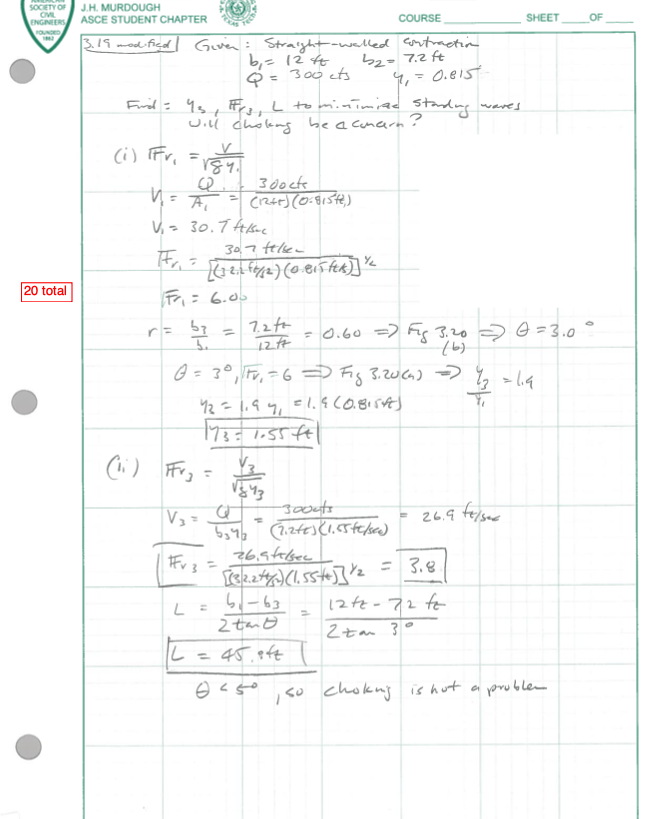 SOCIETY OF
CIVIL
ENGINEERS
FOUNDED
1852
J.H. MURDOUGH
ASCE STUDENT CHAPTER
COURSE ________ SHEET ____ OF ____
3.19 modified Given: Straight-walled contraction
b₁ = 12 ft b₂ = 7.2 ft
Q = 300 cfs y₁ = 0.815
Find = y₃, Fr₃, L to minimize standing waves
Will choking be a concern?
(i) Fr₁ = V/√gy₁
V₁ = Q/A₁ = 300cfs/(12ft)(0.815ft)
V₁ = 30.7 ft/sec
Fr₁ = 30.7 ft/sec/[(32.2 ft/s2)(0.815ft)]^½
Fr₁ = 6.00
20 total
r = b₃/b₁ = 7.2 ft/12 ft = 0.60 ⇒ Fig 3.20 (b) ⇒ θ = 3.0°
θ = 3°, Fr₁ = 6 ⇒ Fig 3.20(a) ⇒ y₃/y₁ = 1.9
y₃ = 1.9 y₁ = 1.9 (0.815ft)
y₃ = 1.55 ft
(ii) Fr₃ = V₃/√gy₃
V₃ = Q/b₃y₃ = 300cfs/(7.2ft)(1.55ft/sec) = 26.9 ft/sec
Fr₃ = 26.9ft/sec/[(32.2ft/s2)(1.55ft)]^½ = 3.8
L = b₁-b₃/2tanθ = 12ft - 7.2 ft/2tan 3°
L = 45.8ft
θ < 5°, so choking is not a problem